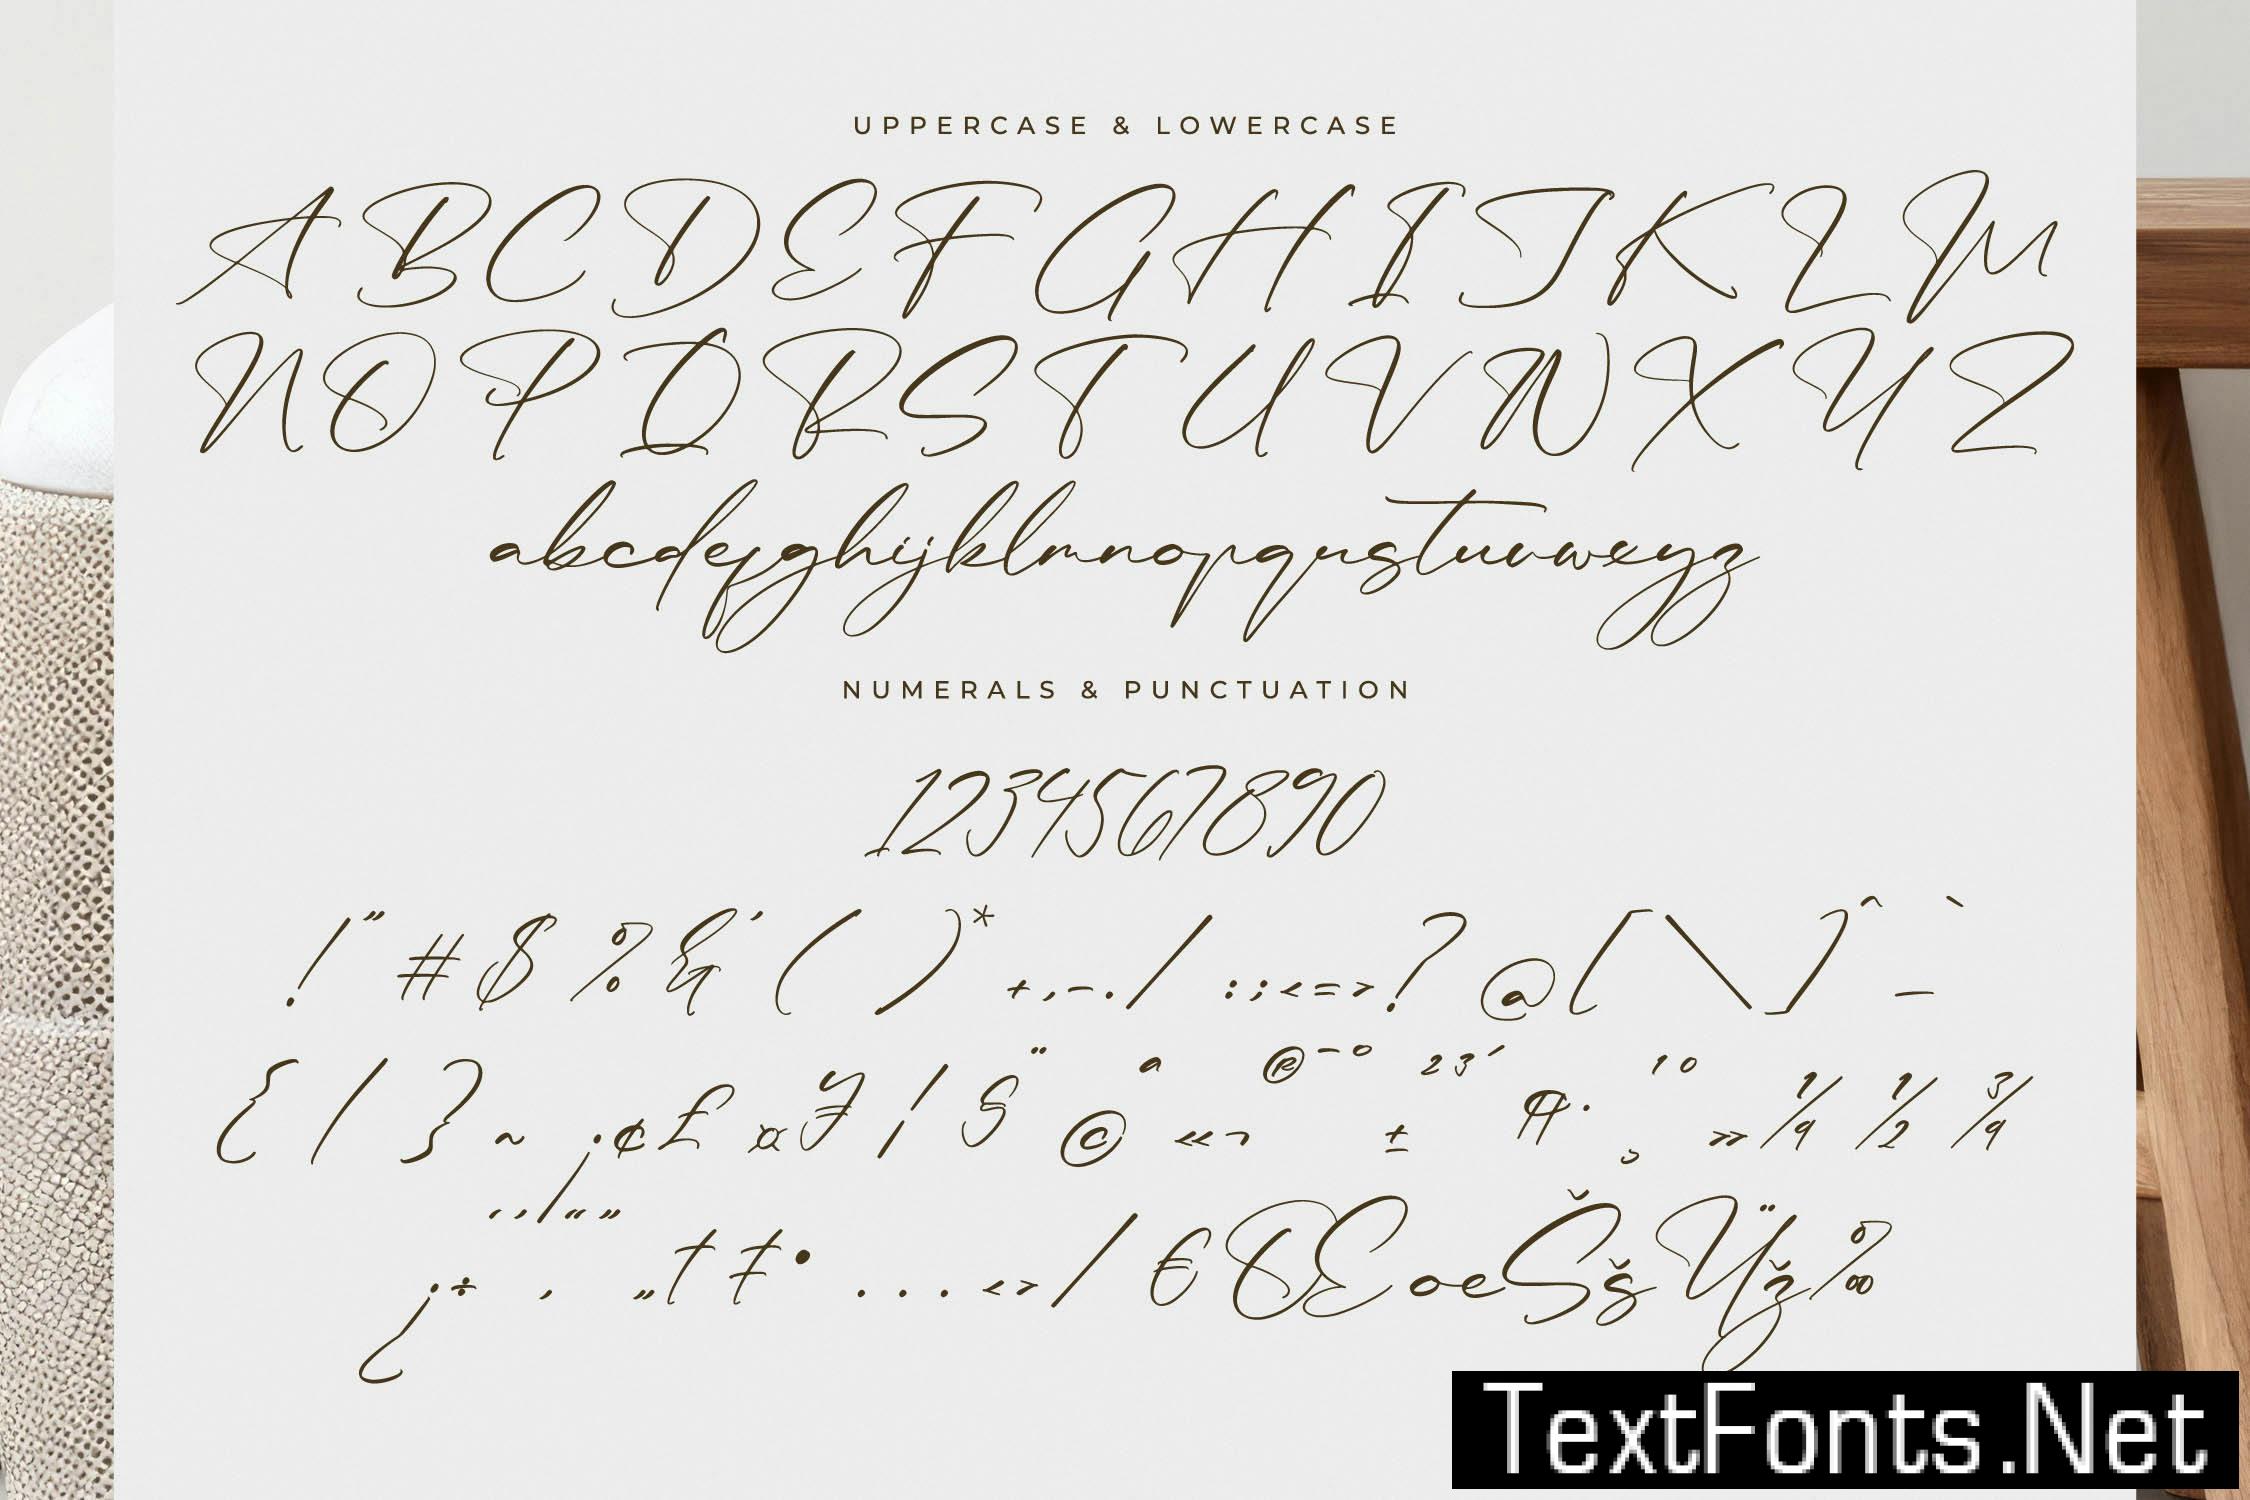 UPPERCASE & LOWERCASE
A B C D E F G H I J K L M
N O P Q R S T U V W X Y Z
abcdefghijklmnopqrstuvwxyz
NUMERALS & PUNCTUATION
1234567890
! " # $ % & ' ( ) * + , - . / : ; < = > ? @ [ \ ] ^ _ `
{ | } ~ ¡ ¢ £ ¤ ¥ ¦ § ¨ © ª « ¬ ® ¯ ° ± ² ³ ´ ¶ · ¸ ¹ º » ¼ ½ ¾
¿ ÷ ‘ ’ ‚ / “ ” „ † ‡ • . . . ‹ › / € Œ œ Š š Ÿ ž ‰
TextFonts.Net